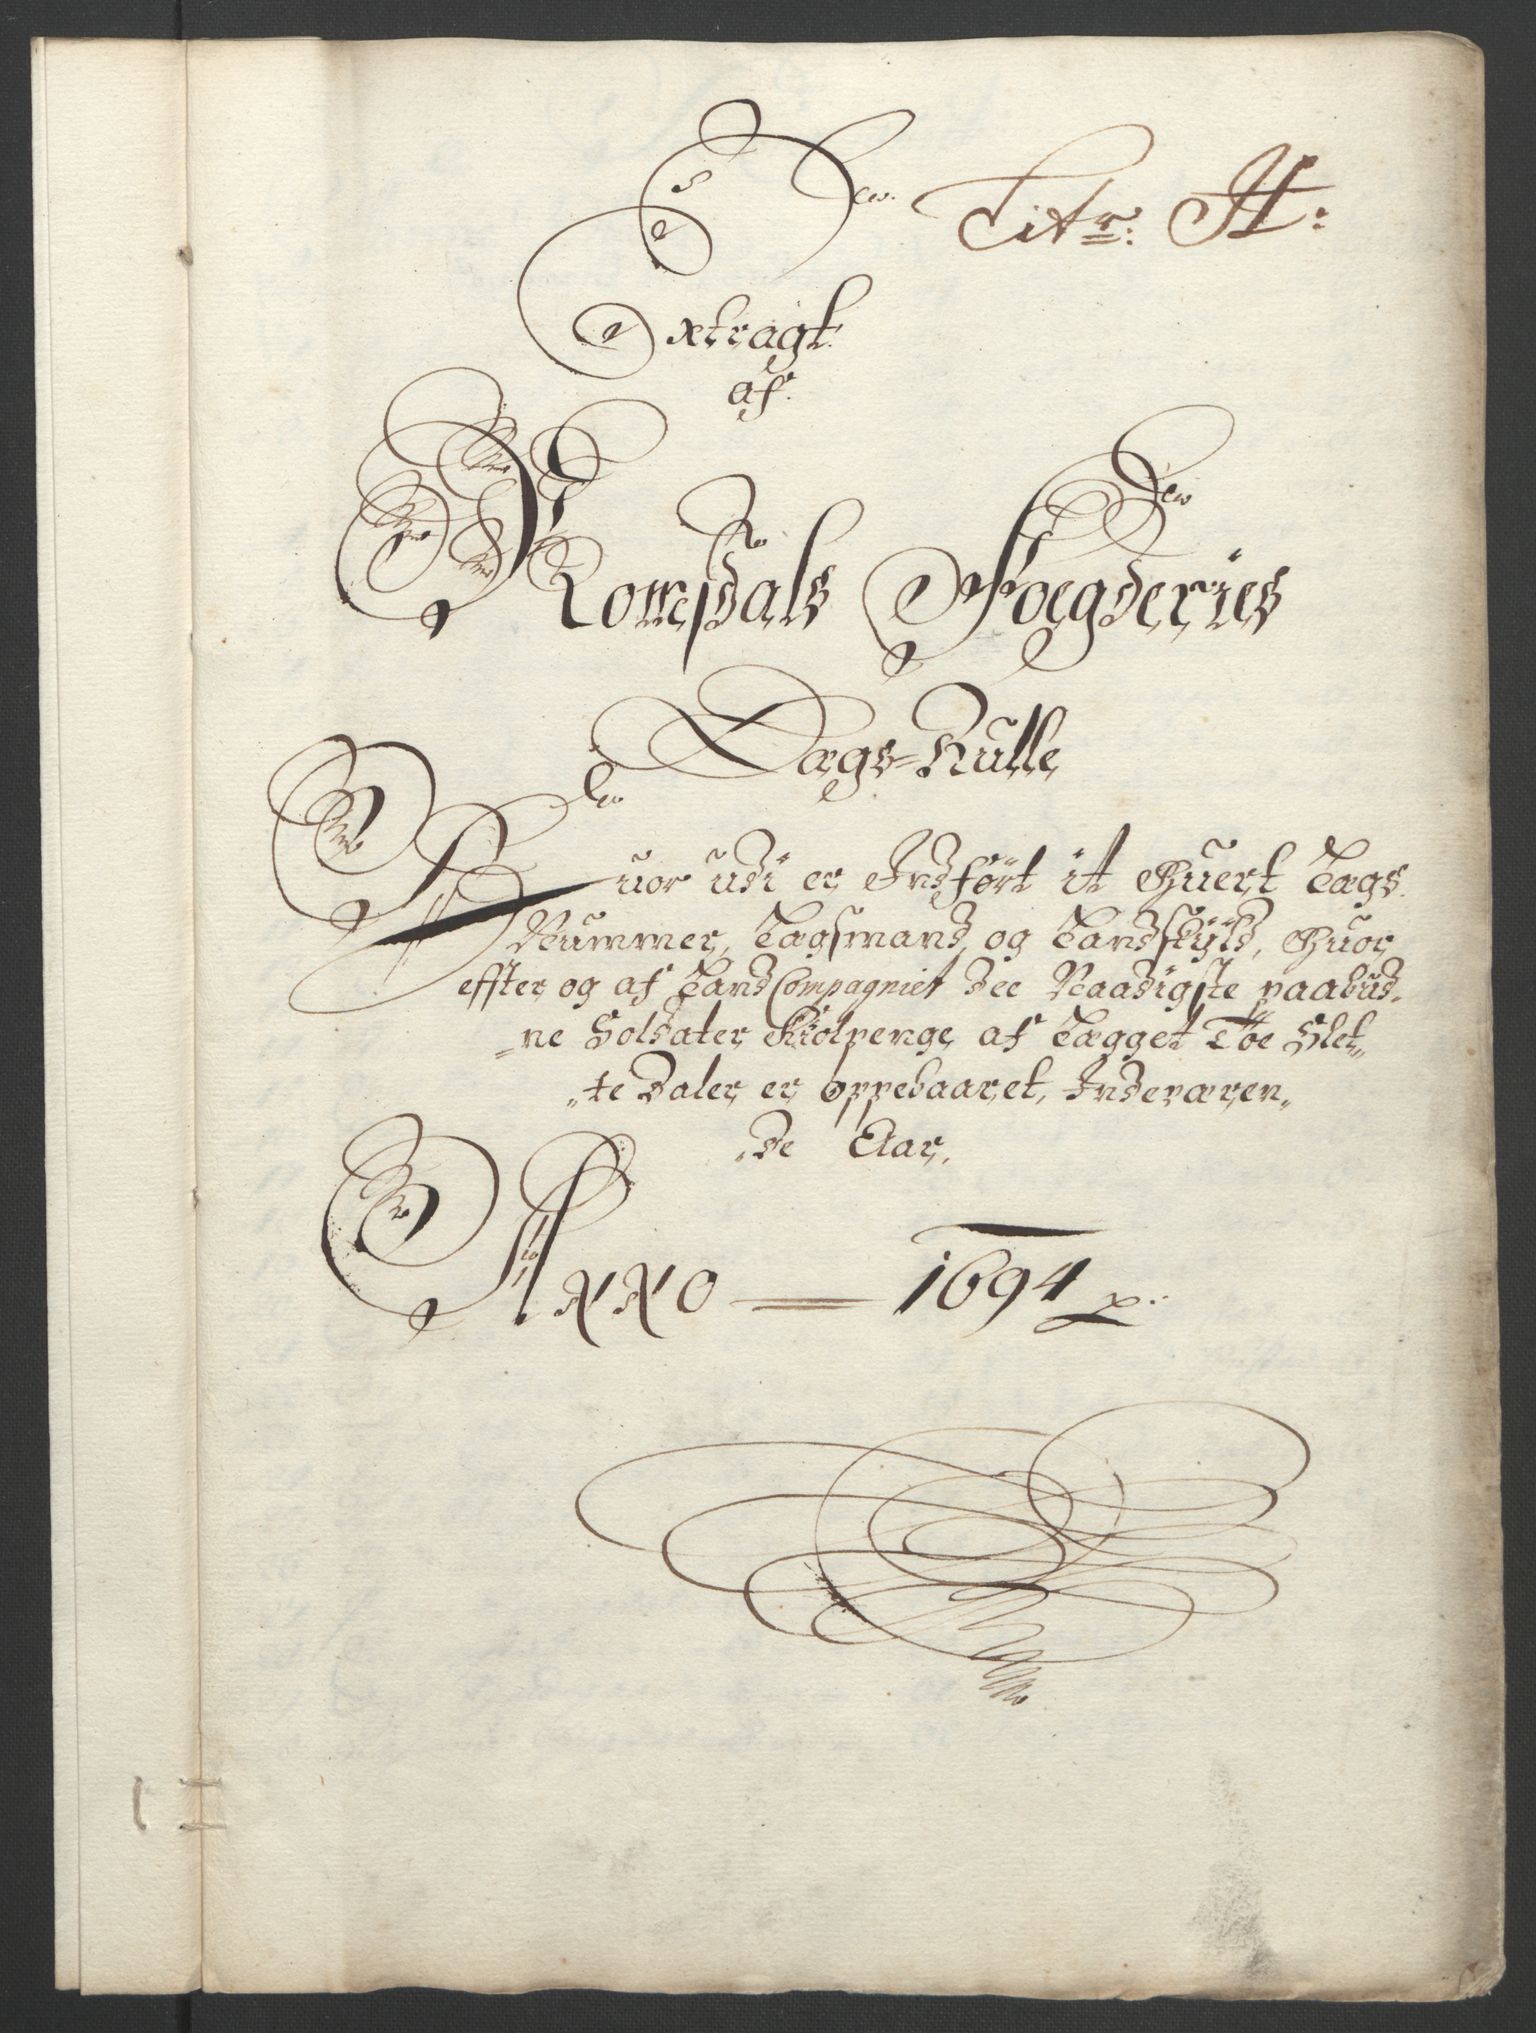 Litr: H:
Extragt
af
Romsdals Foegderies
Lægs-Rulle
Huor udi er Indført it Huert Lægs
Nummer, Lægsmand, og Landskyld, Huor
effter og af Land Compagniet dee Naadigste paabud„
„ne Soldater Kiolpenge af Lægget Toe Slet„
„te Daler er oppebaaret, Indeværen„
„de Aar,
Anno 1694